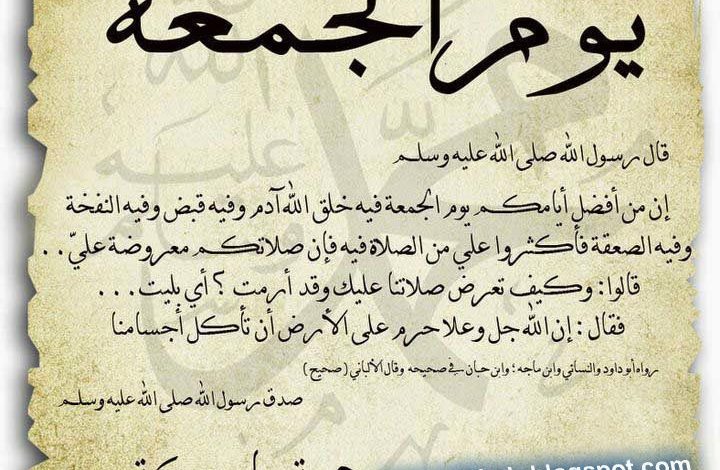 يوم الجمعة
قال رسول الله صلى الله عليه وسلم
إن من أفضل أيامكم يوم الجمعة فيه خلق الله آدم وفيه قبض وفيه النفخة
وفيه الصعقة فأكثروا علي من الصلاة فيه فإن صلاتكم معروضة عليّ . .
قالوا : وكيف تعرض صلاتنا عليك وقد أرمت ؟ أي بليت . . .
فقال : إن الله جل وعلا حرم على الأرض أن تأكل أجسامنا
رواه أبو داود والنسائي وابن ماجه ؛ وابن حبان في صحيحه وقال الألباني ( صحيح )
صدق رسول الله صلى الله عليه وسلم
.blogspot.com